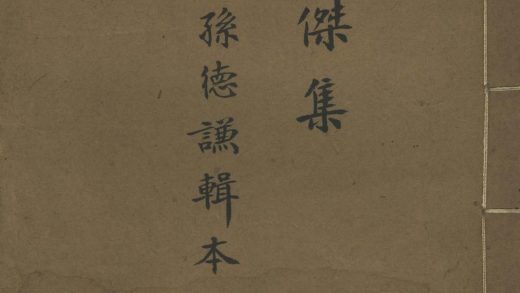 傑集
孫德謙輯本